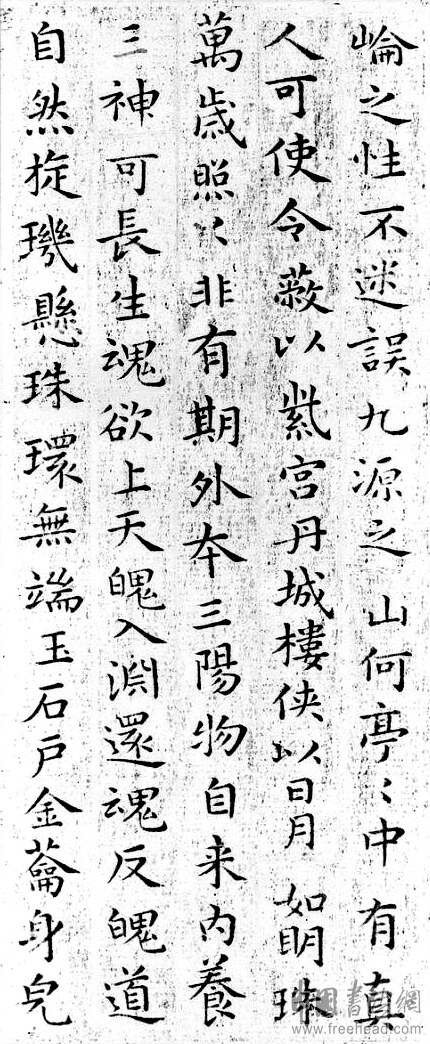 崘之性不迷誤九源之山何亭〻中有真
人可使令蔽以紫宫丹城樓俠以日月如明珠
萬歲照〻非有期外本三陽物自来内養
三神可長生魂欲上天魄入淵還魂反魄道
自然旋璣懸珠環無端玉石戶金蘥身皃
中國書法網
www.freehead.com